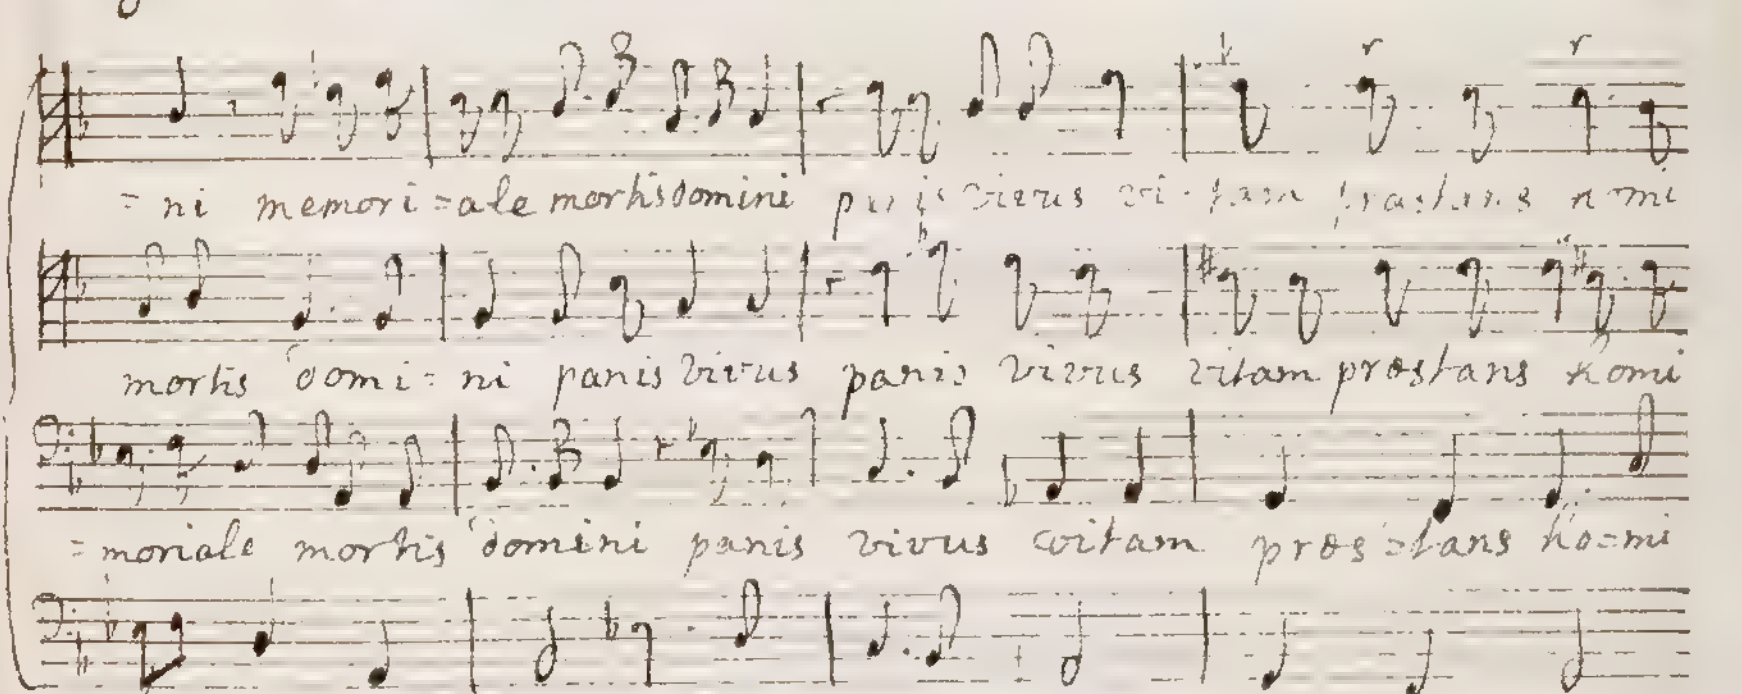 = ni memori=ale mortis domini panis vivus vi-tam præstans homi
mortis domi= ni panis vivus panis vivus vitam præstans homi
=moriale mortis domini panis vivus vitam præs=tans ho=mi